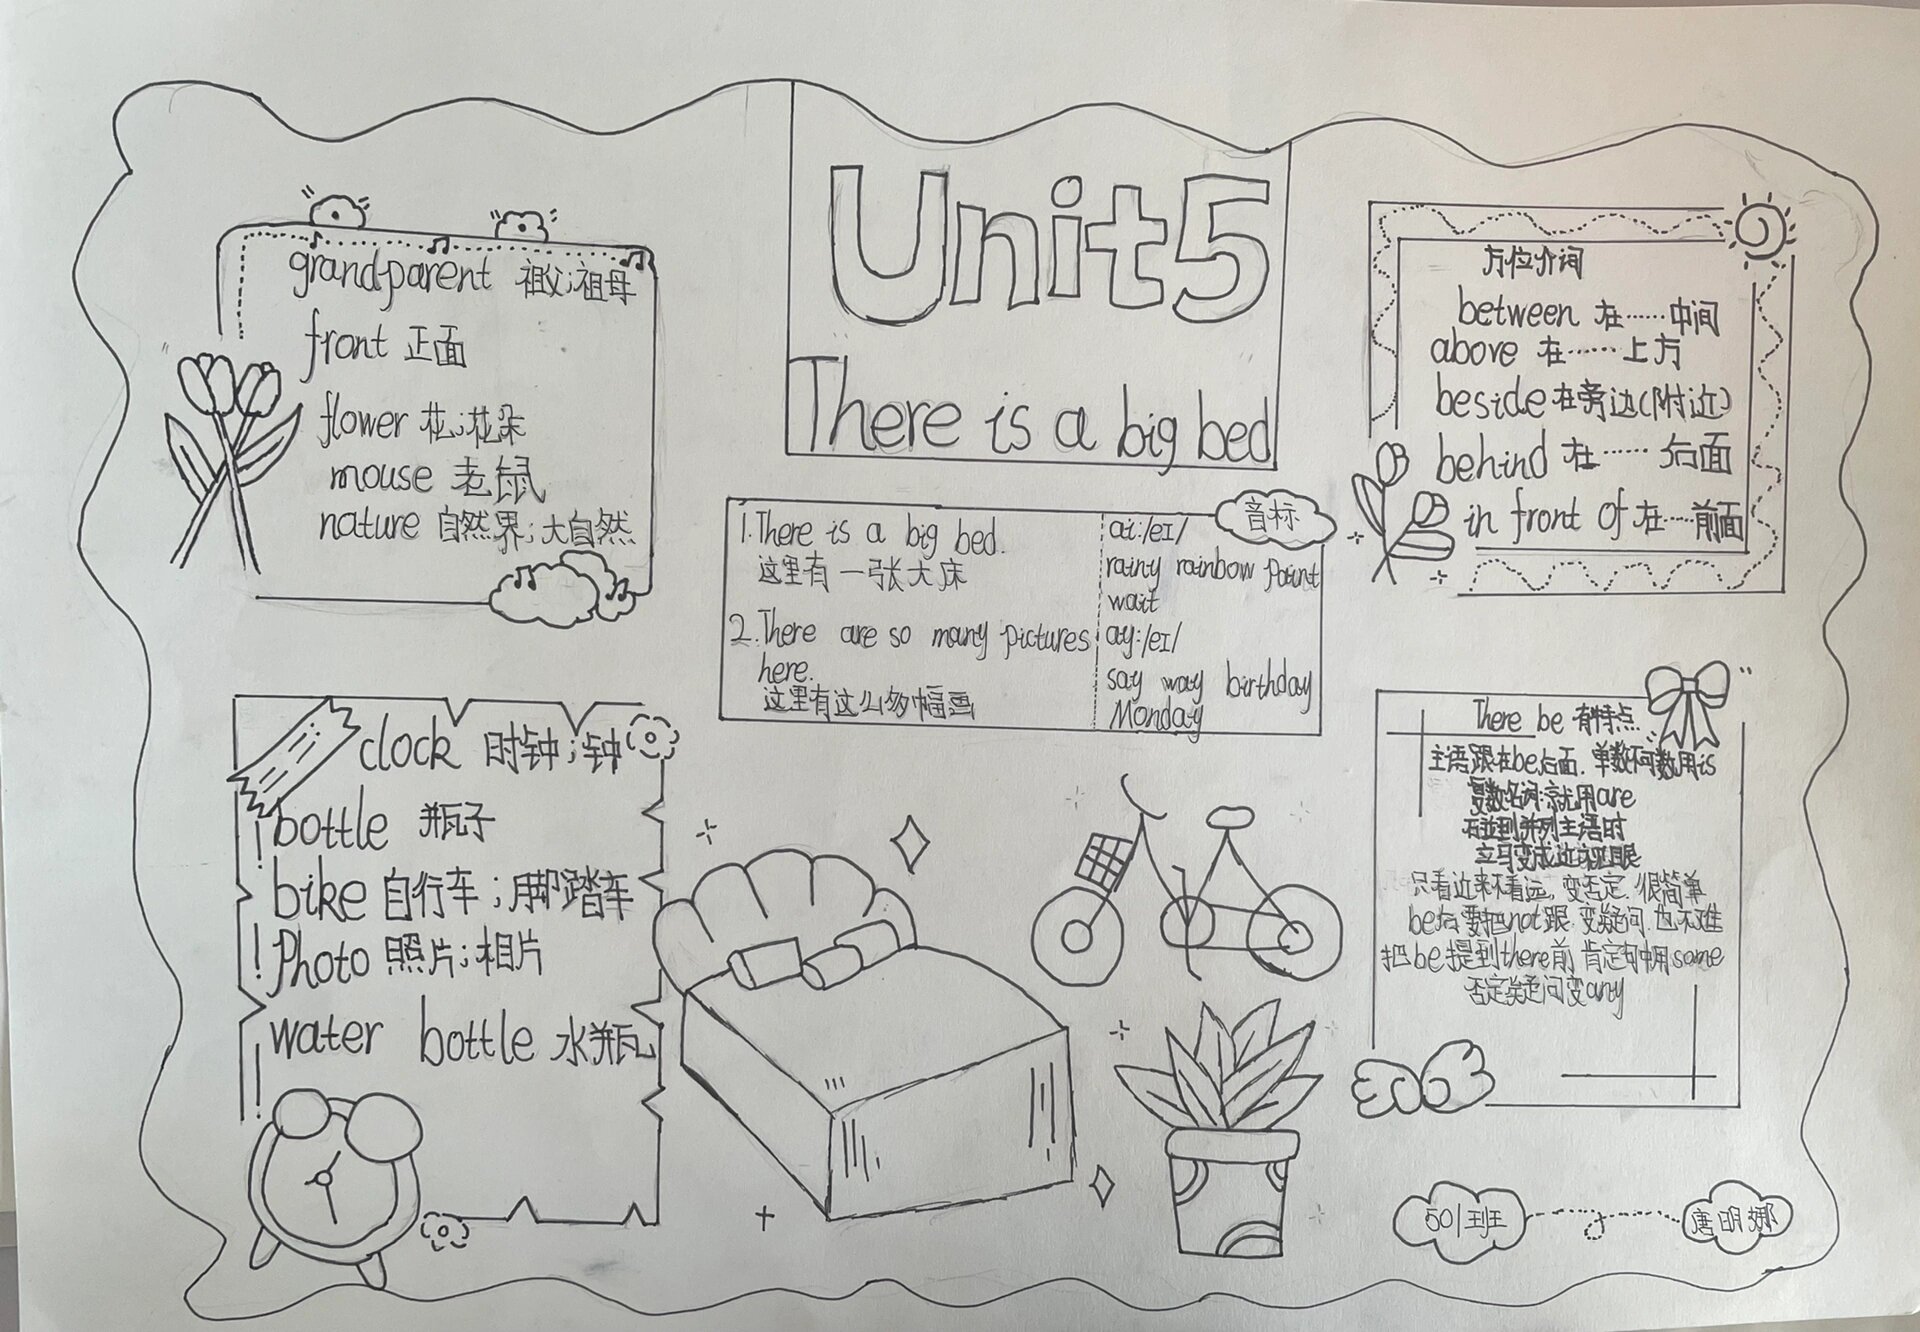 Unit5
There is a big bed
grandparent 祖父;祖母
front 正面
flower 花;花朵
mouse 老鼠
nature 自然界;大自然
1.There is a big bed.
这里有一张大床
2.There are so many pictures
here.
这里有这么多幅画
音标
ai:/eɪ/
rainy rainbow paint
wait
ay:/eɪ/
say way birthday
Monday
方位介词
between 在……中间
above 在……上方
beside 在旁边(附近)
behind 在……后面
in front of 在…前面
clock 时钟;钟
bottle 瓶子
bike 自行车;脚踏车
Photo 照片;相片
water bottle 水瓶
There be 有特点
主语跟在be后面.单数不可数用is
复数名词就用are
碰到并列主语时
立马变成近视眼
只看近来不看远,变否定.很简单
be后要把not跟.变疑问.也不难
把be提到there前 肯定句中用some
否定疑问变any
501班
唐明娜